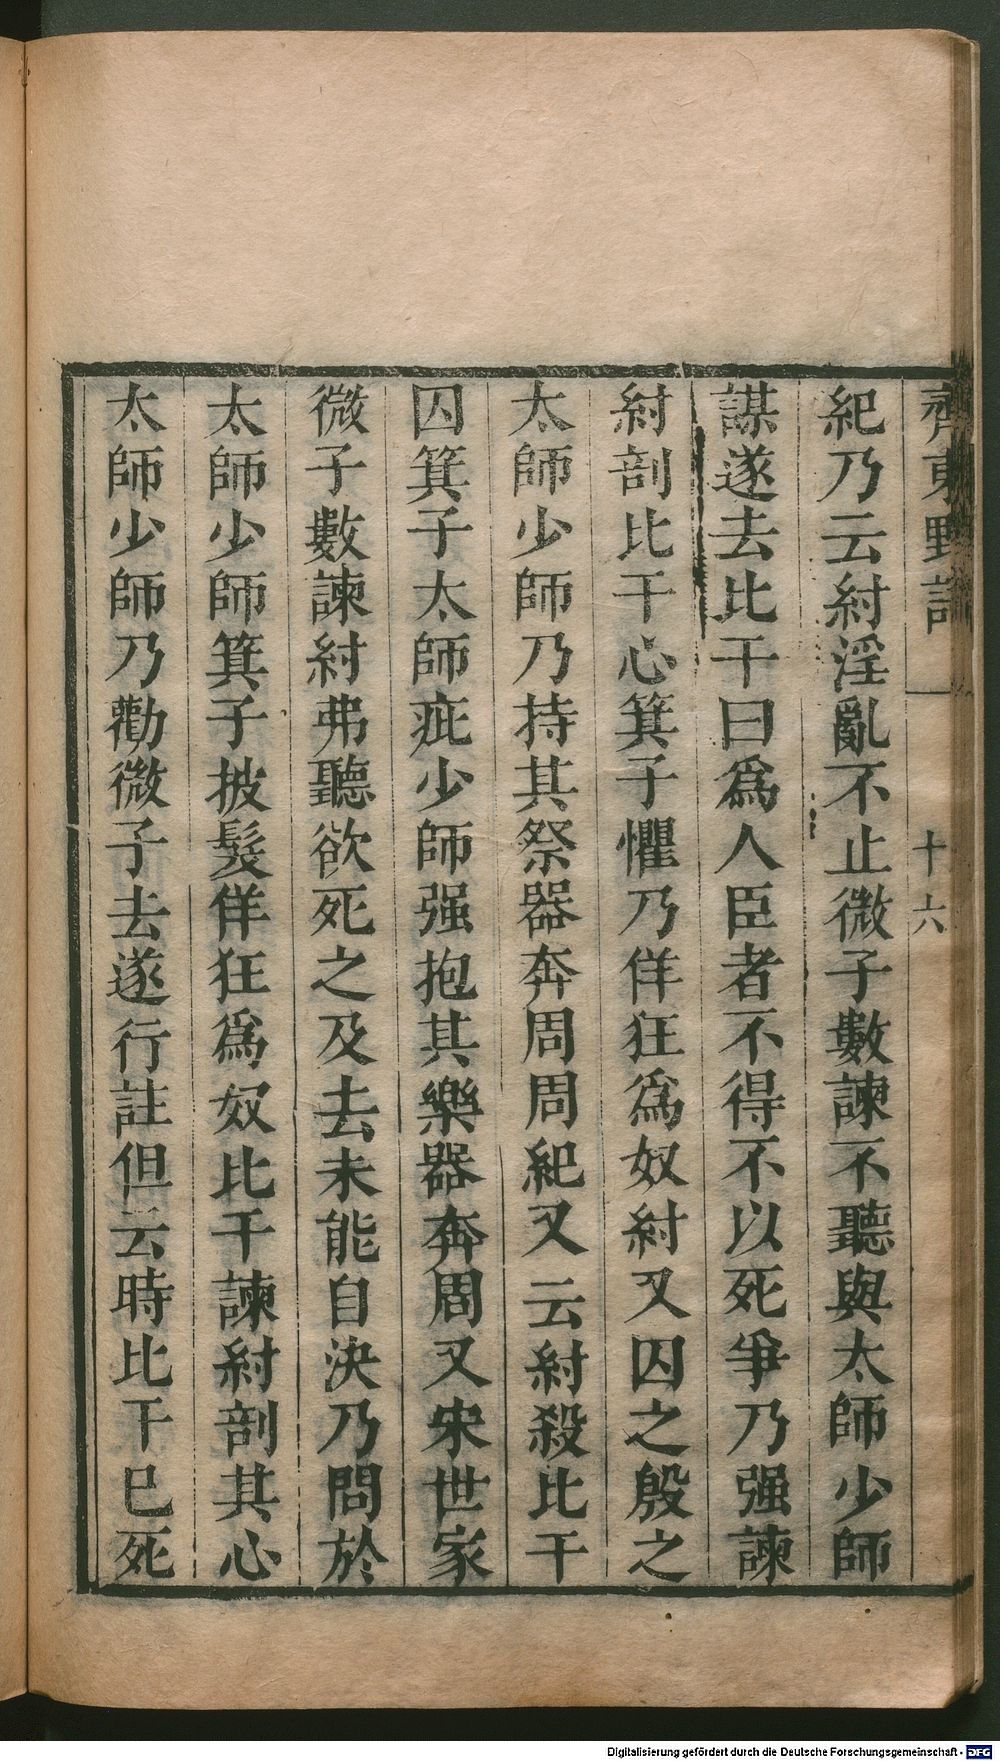 齊東野語
十六
紀乃云紂淫亂不止微子數諫不聽與太師少師
謀遂去比干曰爲人臣者不得不以死爭乃强諫
紂剖比干心箕子懼乃佯狂爲奴紂又囚之殷之
太師少師乃持其祭器奔周周紀又云紂殺比干
囚箕子太師疵少師强抱其樂器奔周又宋世家
微子數諫紂弗聽欲死之及去未能自決乃問於
太師少師箕子披髮佯狂爲奴比干諫紂剖其心
太師少師乃勸微子去遂行註但云時比干已死
Digitalisierung gefördert durch die Deutsche Forschungsgemeinschaft - DFG